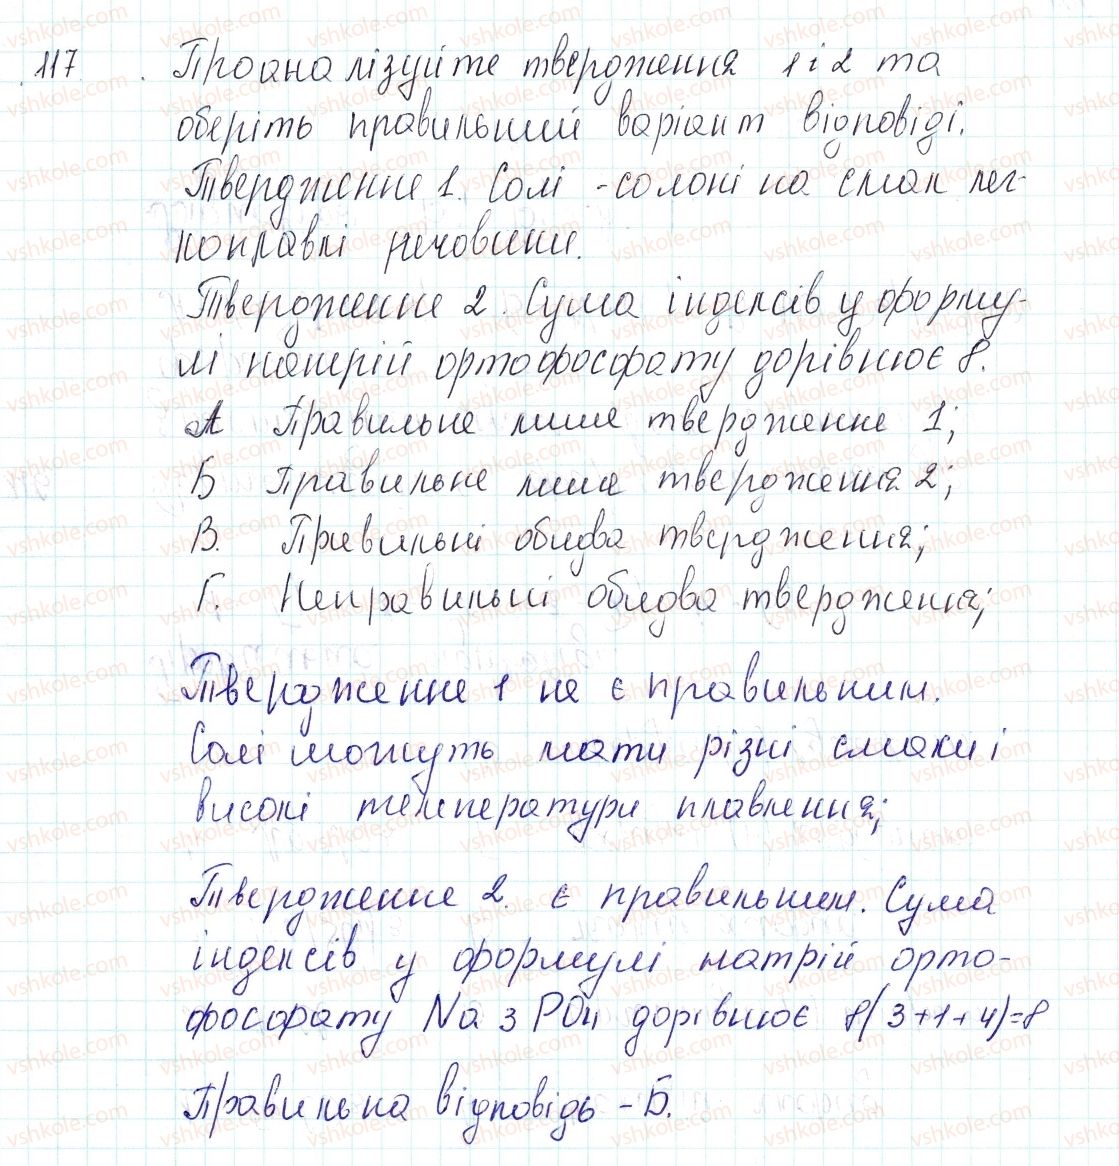 117. Проаналізуйте твердження 1 і 2 та
оберіть правильний варіант відповіді.
Твердження 1. Солі - солоні на смак лег-
коплавкі речовини.
Твердження 2. Сума індексів у форму-
лі натрій ортофосфату дорівнює 8.
А Правильне лише твердження 1;
Б Правильне лише твердження 2;
В. Правильні обидва твердження;
Г. Неправильні обидва твердження;
Твердження 1 не є правильним.
Солі можуть мати різні смаки і
високі температури плавлення;
Твердження 2. є правильним. Сума
індексів у формулі натрій орто-
фосфату Na3PO4 дорівнює 8(3+1+4)=8
Правильна відповідь - Б.